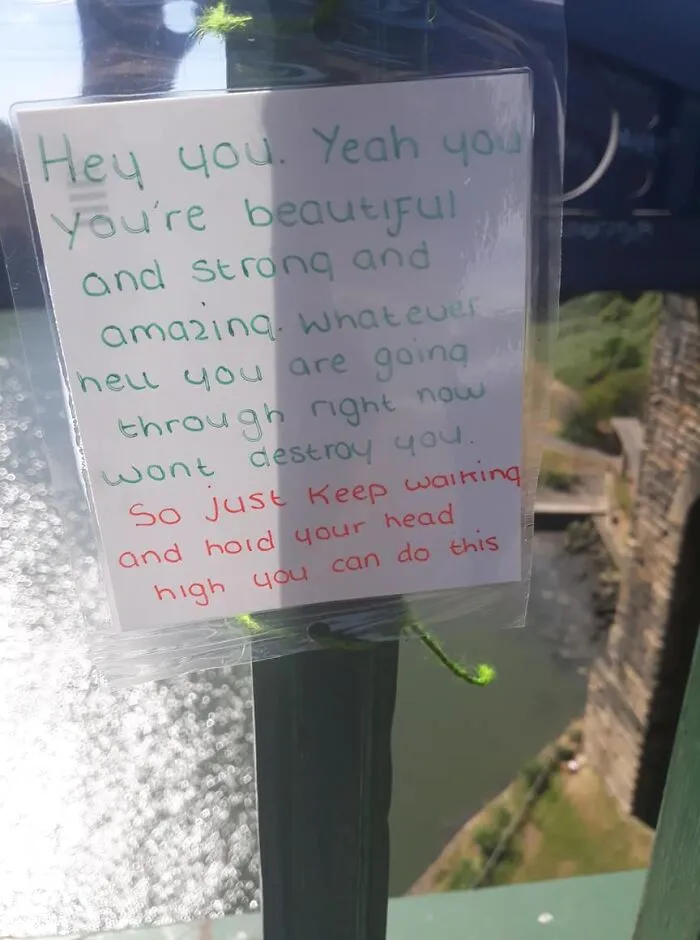 Hey you. Yeah you
You're beautiful
and strong and
amazing. Whatever
hell you are going
through right now
wont destroy you.
So just keep walking
and hold your head
high you can do this